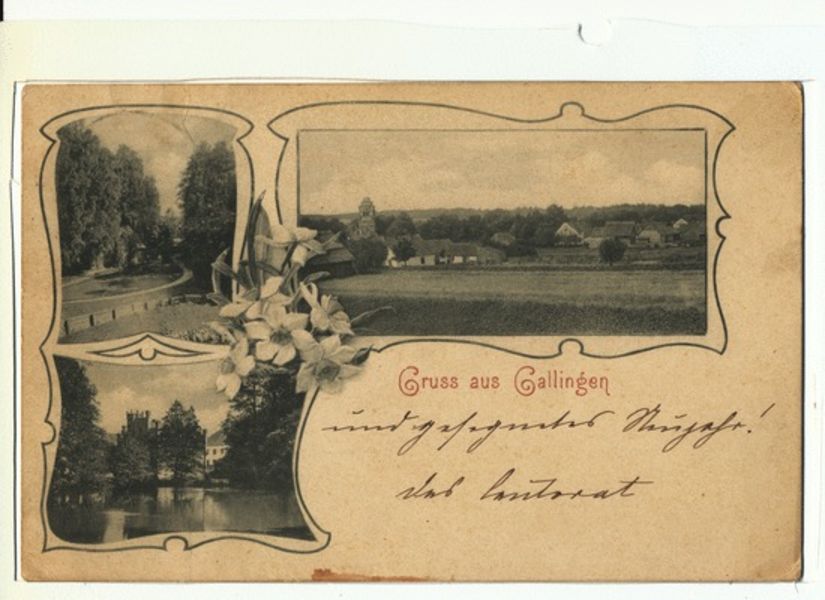 Gruss aus Gallingen
und gesegnetes Neujahr!
das Cantorat